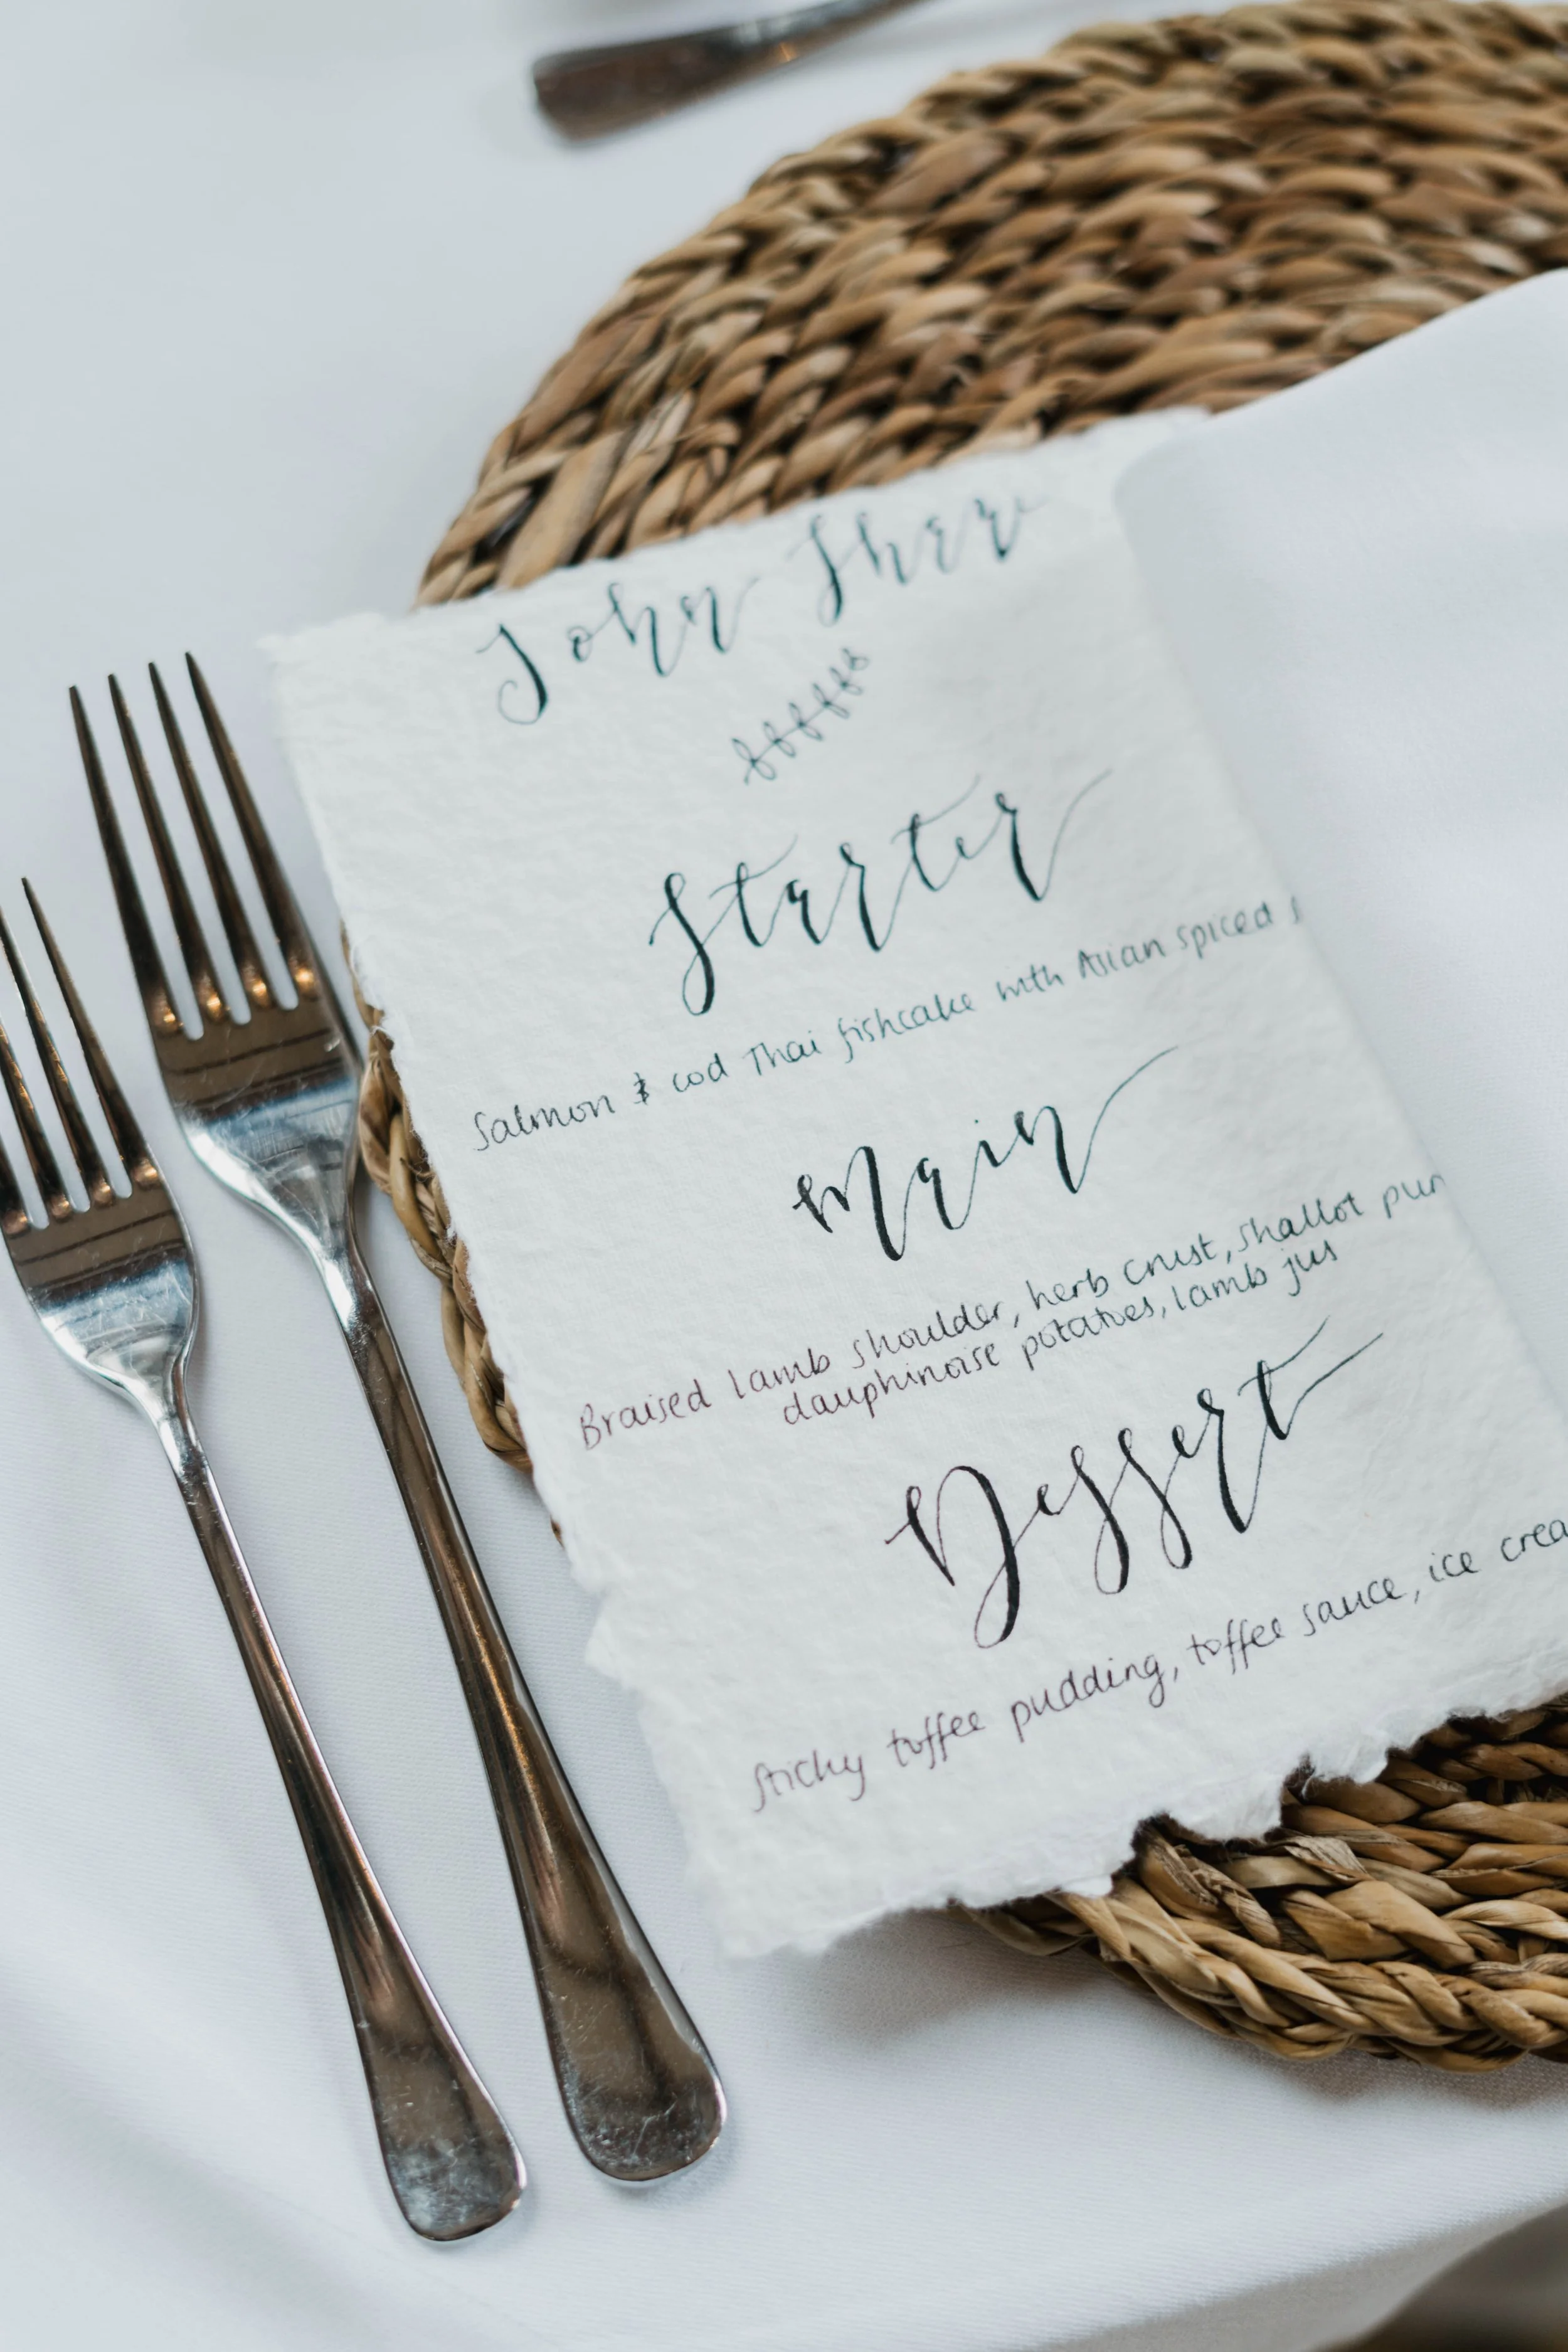 John
Starter
Salmon & cod Thai fishcake with Asian spiced
Main
Braised lamb shoulder, herb crust, shallot
dauphinoise potatoes, lamb jus
Dessert
Sticky toffee pudding, toffee sauce, ice